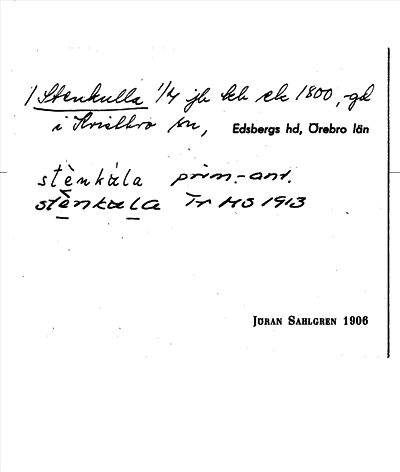 1 Stenkulla 1/4 jb kb ek 1800, -gd
i Kvistbro sn, Edsbergs hd, Örebro län
stènkúla prim.-ant.
stènkula Tr HS 1913
JÖRAN SAHLGREN 1906